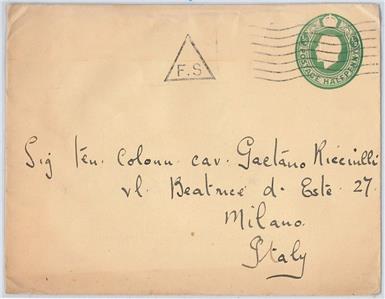 F.S
POSTAGE HALFPENNY
Sig Ten. Colonn. cav. Gaetano
vl. Beatrice d. Este 27.
Milano.
Italy